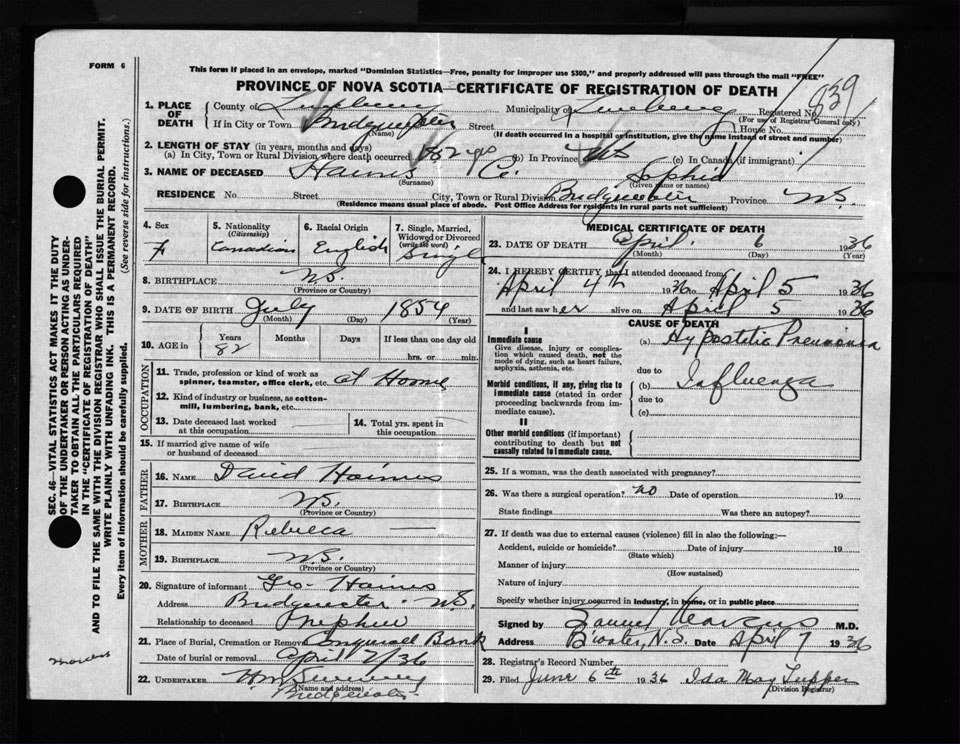 FORM 6
This form if placed in an envelope, marked "Dominion Statistics—Free, penalty for improper use $300," and properly addressed will pass through the mail "FREE"
PROVINCE OF NOVA SCOTIA—CERTIFICATE OF REGISTRATION OF DEATH
839
1. PLACE OF DEATH County of Lunenburg Municipality of Lunenburg Registered No.
(For use of Registrar General only)
If in City or Town Bridgewater Street House No.
(Name) (If death occurred in a hospital or institution, give the name instead of street and number)
2. LENGTH OF STAY (in years, months and days)
(a) In City, Town or Rural Division where death occurred 82 yrs (b) In Province (c) In Canada (if immigrant)
3. NAME OF DECEASED Hains Sophia
(Surname) (Given name or names)
RESIDENCE No. Street City, Town or Rural Division Bridgewater Province N.S.
(Residence means usual place of abode. Post Office Address for residents in rural parts not sufficient)
4. Sex 5. Nationality (Citizenship) 6. Racial Origin 7. Single, Married, Widowed or Divorced (write the word)
F Canadian English Single
8. BIRTHPLACE N.S.
(Province or Country)
9. DATE OF BIRTH July 1854
(Month) (Day) (Year)
10. AGE in Years Months Days If less than one day old
82 hrs. or min.
OCCUPATION
11. Trade, profession or kind of work as spinner, teamster, office clerk, etc. at Home
12. Kind of industry or business, as cotton-mill, lumbering, bank, etc.
13. Date deceased last worked at this occupation 14. Total yrs. spent in this occupation
15. If married give name of wife or husband of deceased
FATHER
16. NAME David Hains
17. BIRTHPLACE N.S.
(Province or Country)
MOTHER
18. MAIDEN NAME Rebecca
19. BIRTHPLACE N.S.
(Province or Country)
20. Signature of informant Geo. Hains
Address Bridgewater N.S.
Relationship to deceased Nephew
21. Place of Burial, Cremation or Removal Conquerall Bank
Date of burial or removal April 7/36
22. UNDERTAKER
(Name and address)
Bridgewater
MEDICAL CERTIFICATE OF DEATH
23. DATE OF DEATH April 6 1936
(Month) (Day) (Year)
24. I HEREBY CERTIFY, that I attended deceased from
April 4th 1936 to April 5 1936
and last saw her alive on April 5 1936
CAUSE OF DEATH
I
Immediate cause
Give disease, injury or complication which caused death, not the mode of dying, such as heart failure, asphyxia, asthenia, etc.
(a) Hypostatic Pneumonia
due to
Morbid conditions, if any, giving rise to immediate cause (stated in order proceeding backwards from immediate cause).
(b) Influenza
due to
(c)
II
Other morbid conditions (if important) contributing to death but not causally related to immediate cause.
25. If a woman, was the death associated with pregnancy?
26. Was there a surgical operation? no Date of operation 19
State findings Was there an autopsy?
27. If death was due to external causes (violence) fill in also the following:—
Accident, suicide or homicide? Date of injury 19
(State which)
Manner of injury
(How sustained)
Nature of injury
Specify whether injury occurred in industry, in home, or in public place
Signed by Samuel Marcus M.D.
Address B'water, N.S. Date April 7 1936
28. Registrar's Record Number
29. Filed June 6th 1936 Ida May Tupper
(Division Registrar)
SEC. 46—VITAL STATISTICS ACT MAKES IT THE DUTY
OF THE UNDERTAKER OR PERSON ACTING AS UNDER-
TAKER TO OBTAIN ALL THE PARTICULARS REQUIRED
IN THE "CERTIFICATE OF REGISTRATION OF DEATH"
AND TO FILE THE SAME WITH THE DIVISION REGISTRAR WHO SHALL ISSUE THE BURIAL PERMIT.
WRITE PLAINLY WITH UNFADING INK. THIS IS A PERMANENT RECORD.
Every item of information should be carefully supplied. (See reverse side for instructions.)
Marcus